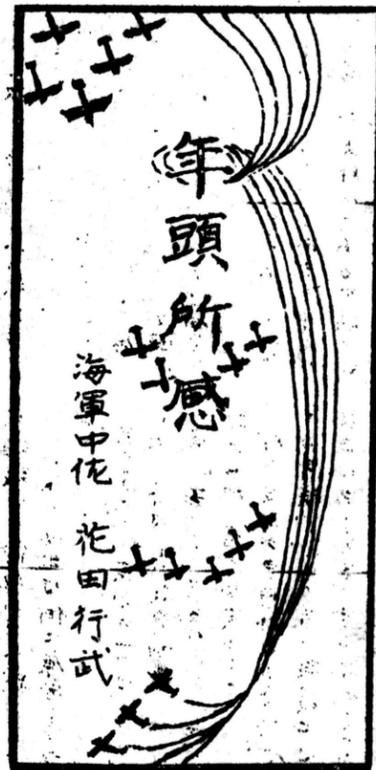 年頭所感
海軍中佐 花田行武